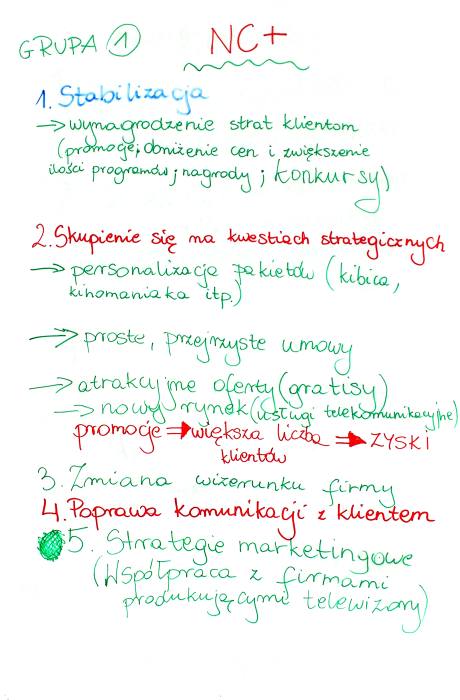 GRUPA 1 NC+
1. Stabilizacja
→ wynagrodzenie strat klientom
(promocje; obniżenie cen i zwiększenie
ilości programów; nagrody; konkursy)
2. Skupienie się na kwestiach strategicznych
→ personalizacja pakietów (kibica,
kinomaniaka itp.)
→ proste, przejrzyste umowy
→ atrakcyjne oferty (gratisy)
→ nowy rynek (usługi telekomunikacyjne)
promocje → większa liczba → ZYSKI
klientów
3. Zmiana wizerunku firmy
4. Poprawa komunikacji z klientem
5. Strategie marketingowe
(Współpraca z firmami
produkującymi telewizory)